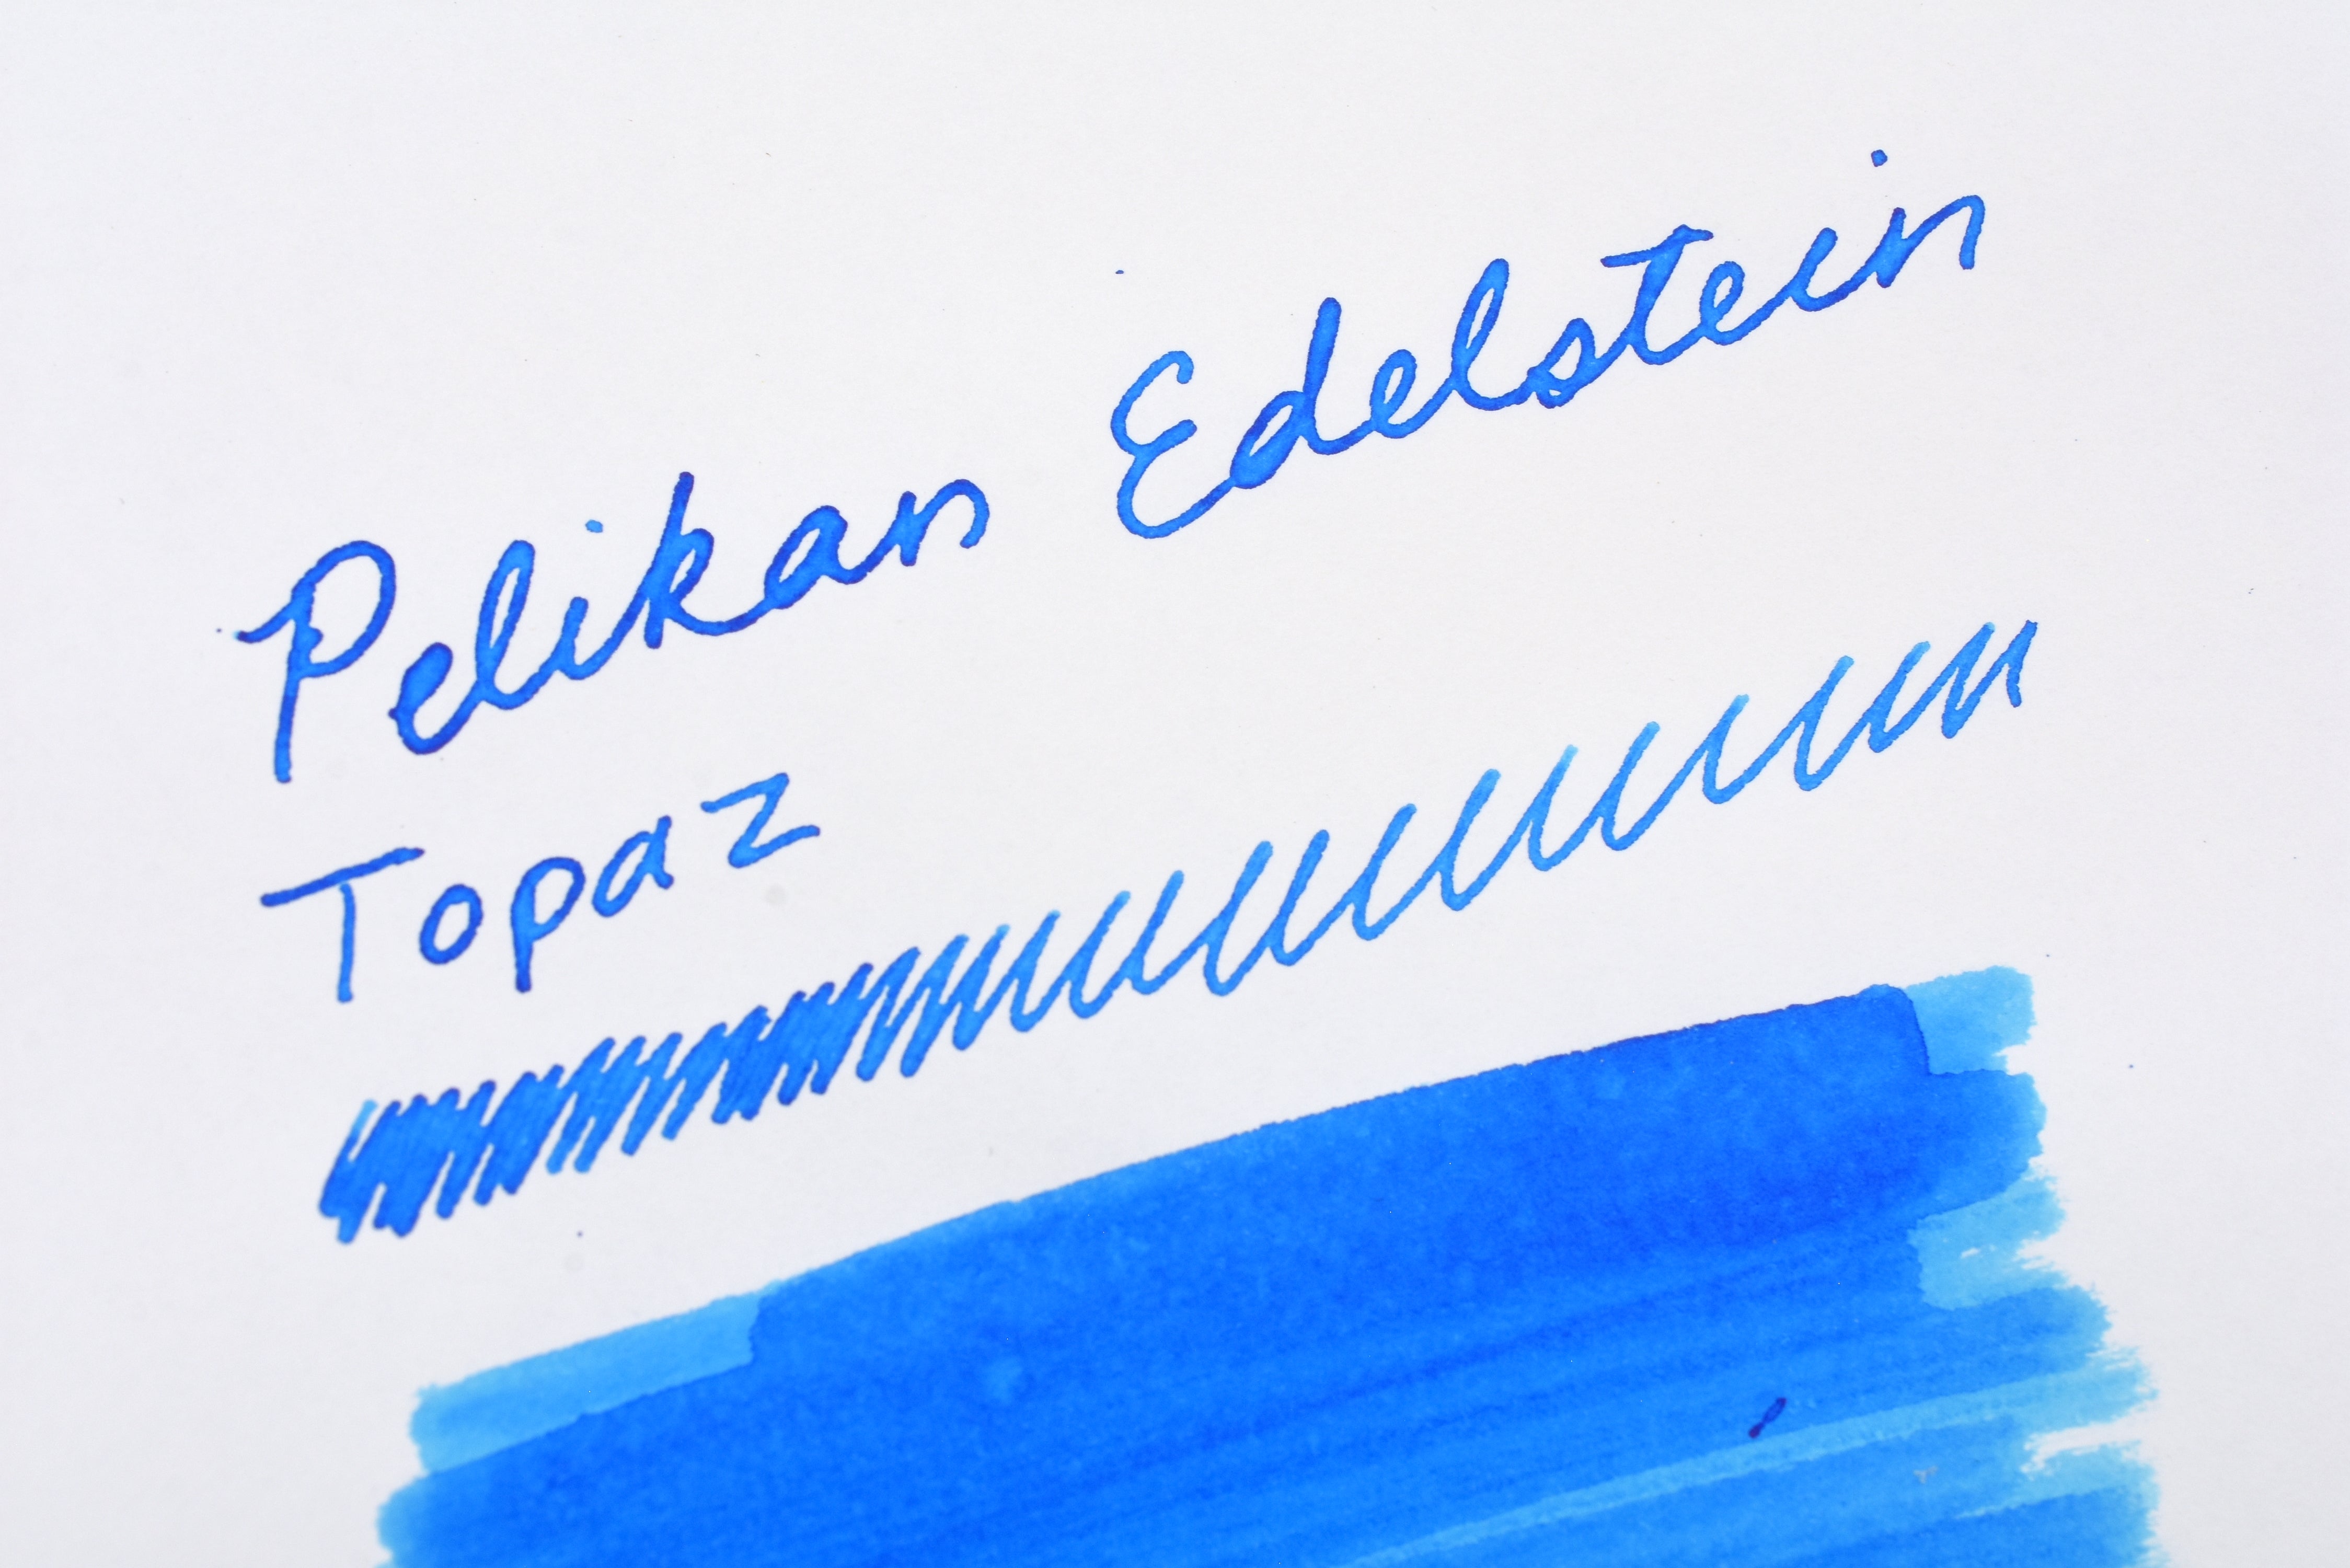 Pelikan Edelstein
Topaz